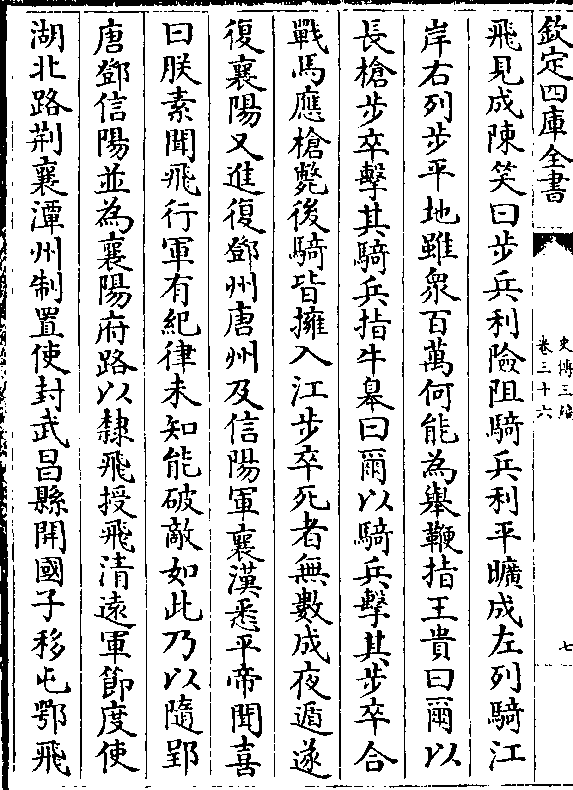 欽定四庫全書
史傳三編
卷三十六
七
飛見成陳笑曰步兵利險阻騎兵利平曠成左列騎江
岸右列步平地雖衆百萬何能為舉鞭指王貴曰爾以
長槍步卒擊其騎兵指牛皐曰爾以騎兵擊其步卒合
戰馬應槍斃後騎皆擁入江步卒死者無數成夜遁遂
復襄陽又進復鄧州唐州及信陽軍襄漢悉平帝聞喜
曰朕素聞飛行軍有紀律未知能破敵如此乃以隨郢
唐鄧信陽並為襄陽府路以隸飛授飛清遠軍節度使
湖北路荆襄潭州制置使封武昌縣開國子移屯鄂飛